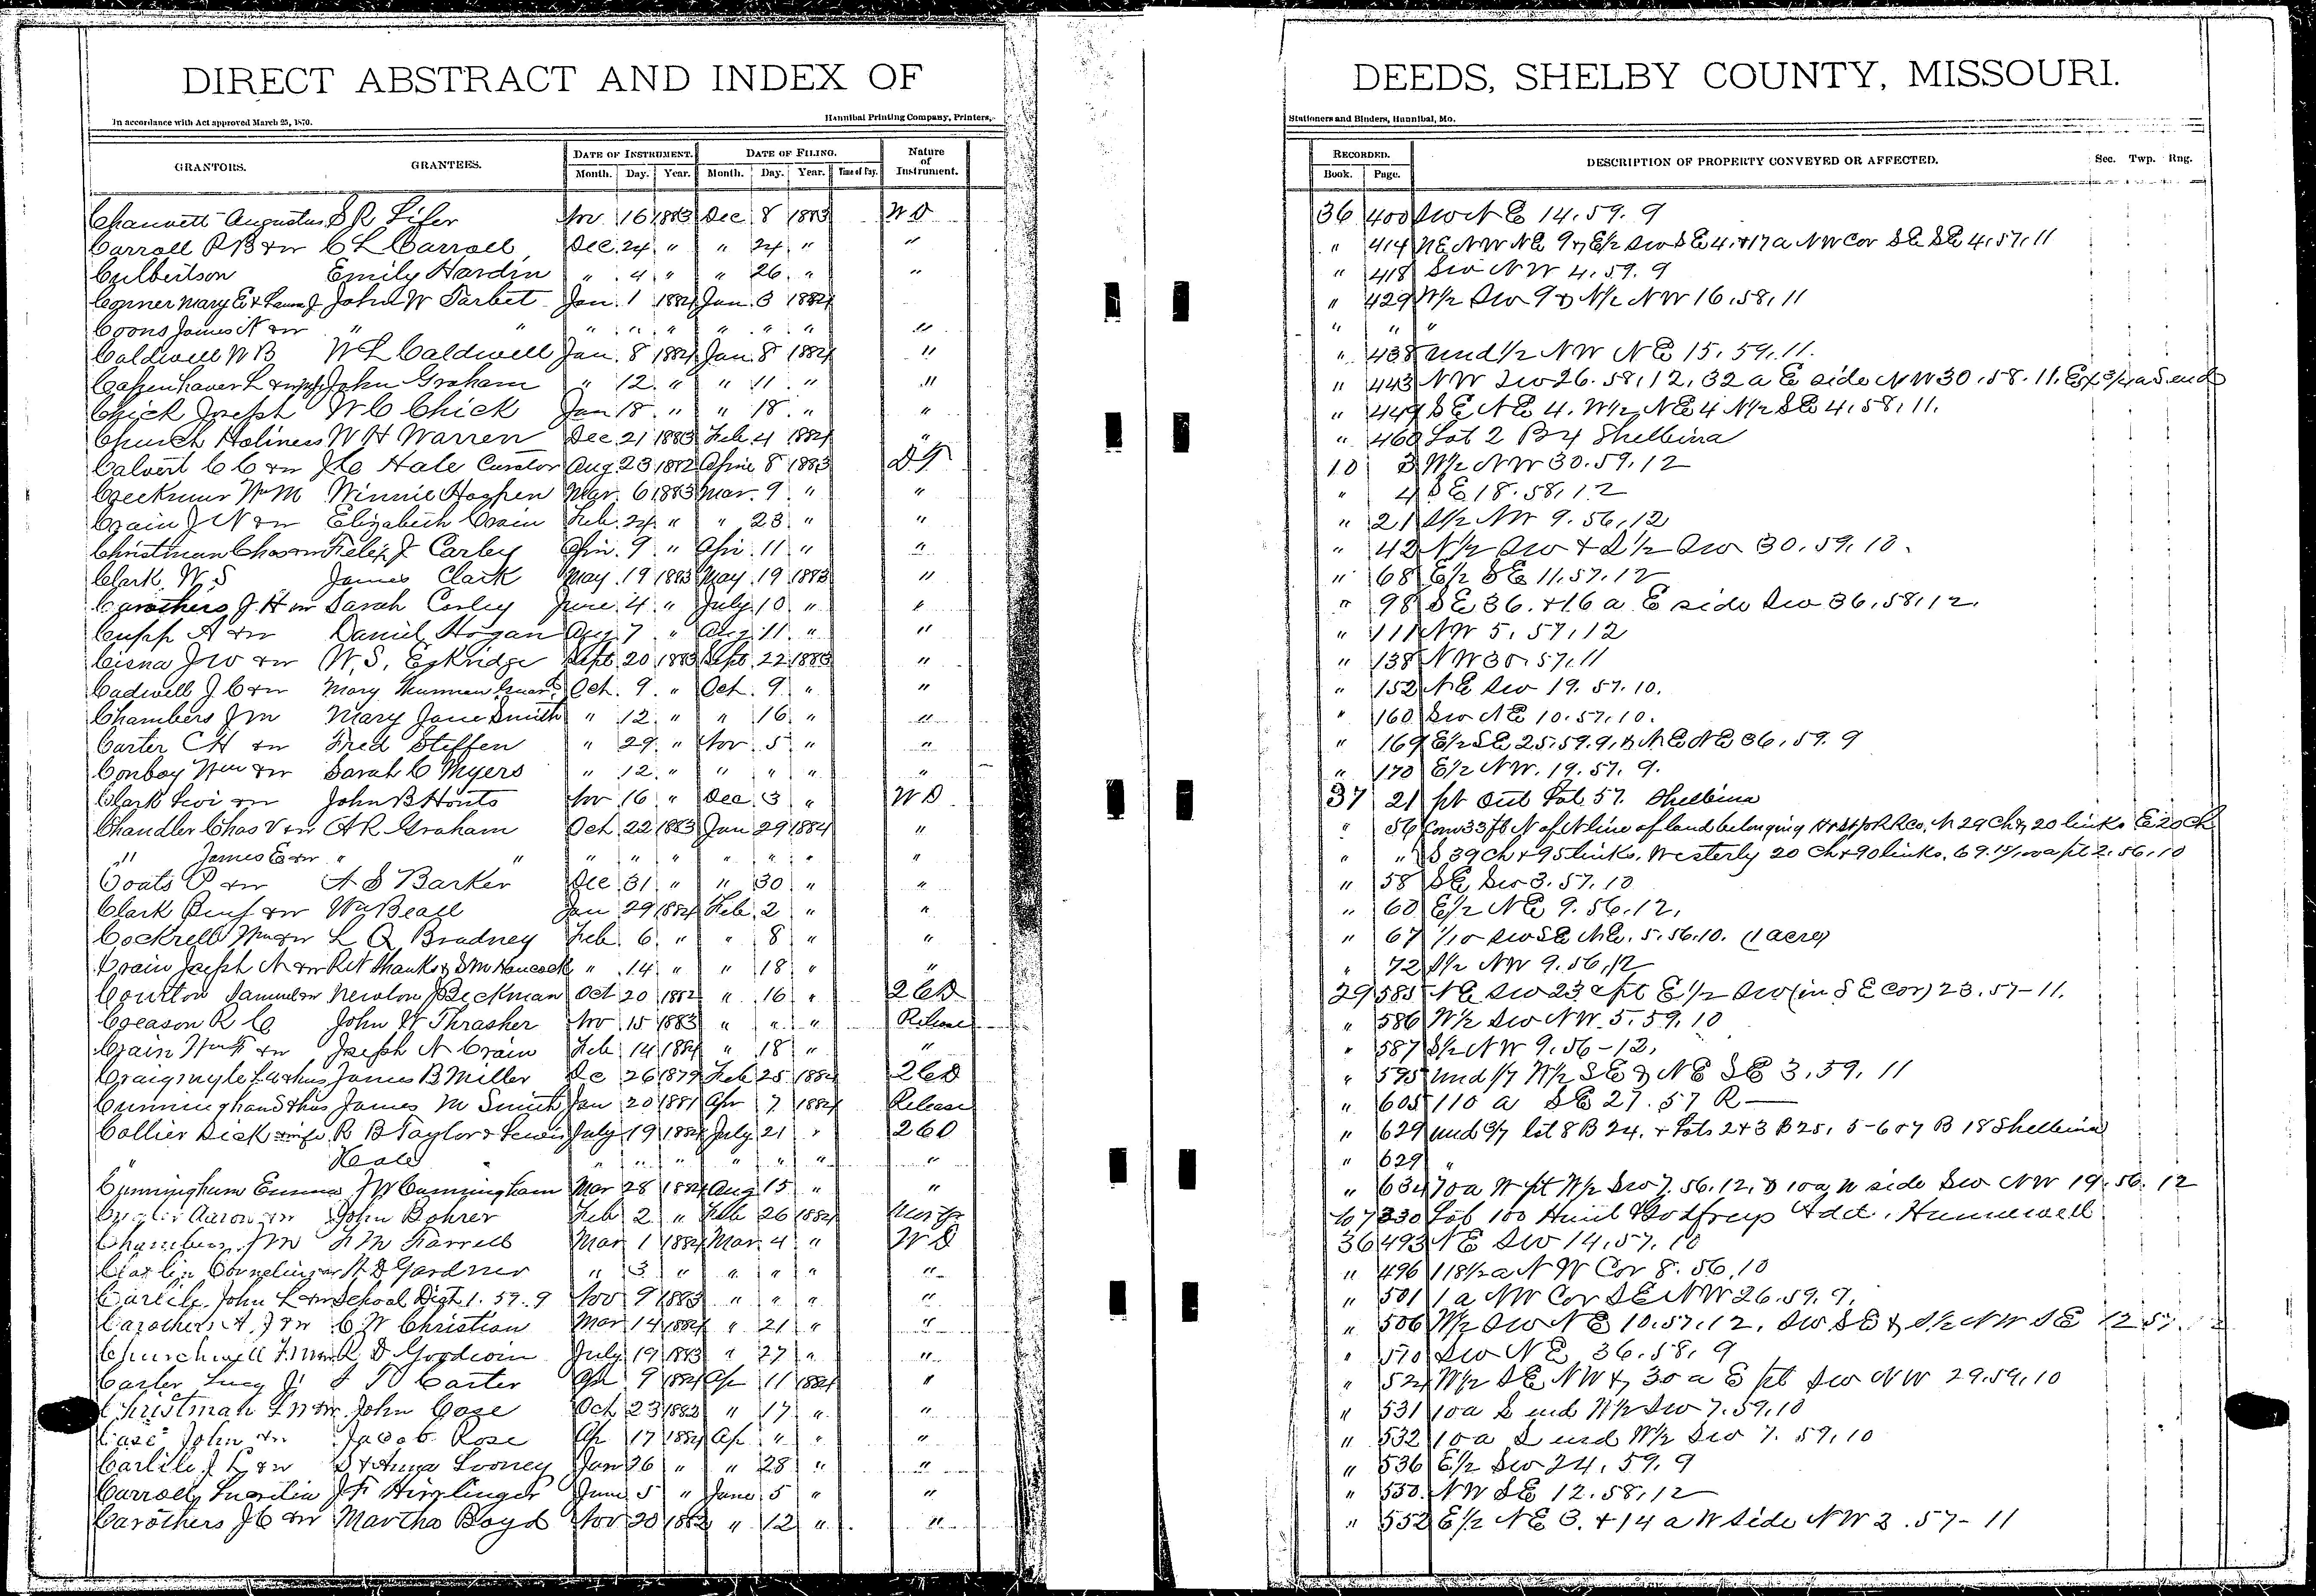 DIRECT ABSTRACT AND INDEX OF DEEDS, SHELBY COUNTY, MISSOURI.
In accordance with Act approved March 25, 1870. Hannibal Printing Company, Printers, Stationers and Binders, Hannibal, Mo.
GRANTORS. GRANTEES. DATE OF INSTRUMENT. Month. Day. Year. DATE OF FILING. Month. Day. Year. Time of Day. Nature of Instrument. RECORDED. Book. Page. DESCRIPTION OF PROPERTY CONVEYED OR AFFECTED. Sec. Twp. Rng.
Chauvett Augustus S R Fifer Nov 16 1883 Dec 8 1883 W D 36 400 SW N E 14. 59. 9
Carroll P B & w C L Carroll Dec 24 " " 24 " " " 414 NE NW NE 9 & E/2 SW SE 4. & 17 a NW Cor SE SE 4. 57. 11
Culbertson Emily Hardin " 4 " " 26 " " " 418 SW NW 4. 59. 9
Corner Mary E & Laura J John W Tarbet Jan 1 1884 Jan 3 1884 " 429 W/2 SW 9 & N/2 NW 16. 58. 11
Coons James N & w " " " " " " " " " " " "
Caldwell W B W L Caldwell Jan 8 1884 Jan 8 1884 " " 438 und 1/2 NW NE 15. 59. 11.
John Graham " 12 " " 11 " " " 443 NW SW 26. 58. 12, 32 a E side NW 30. 58. 11. Ex 3/4 a S end
Chick Joseph W C Chick Jan 18 " " 18 " " " 449 S E N E 4. W/2 NE 4 N/2 SE 4. 58. 11.
Church Holiness W H Warren Dec 21 1883 Feb 4 1884 " " 460 Lot 2 B 4 Shelbina
Calvert C C & w J C Hale Curator Aug 23 1882 Aprie 8 1883 D T 10 3 W/2 NW 30. 59. 12
Wm M Winnie Mar 6 1883 Mar 9 " " " 4 S E 18. 58. 12
Crain J N & w Elizabeth Crain Feb 24 " " 23 " " " 21 S/2 NW 9. 56. 12
Christman Chas & w Felix J Carley Apr 9 " Apr 11 " " " 42 N/2 SW & S 1/2 SW 30. 59. 10.
Clark W S James Clark May 19 1883 May 19 1883 " " 68 E/2 SE 11. 57. 12
Carothers J H & w Sarah Corley June 4 " July 10 " " " 98 S E 36. & 16 a E side SW 36. 58. 12.
Cupp A & w Daniel Hogan Aug 7 " Aug 11 " " " 111 NW 5. 57. 12
Cisna J W & w W. S. Eskridge Sept 20 1883 Sept 22 1883 " " 138 NW 30. 57. 11
Cadwell J C & w Mary Thurman Guar Oct 9 " Oct 9 " " " 152 NE SW 19. 57. 10.
Chambers J M Mary Jane Smith " 12 " " 16 " " " 160 SW NE 10. 57. 10.
Carter C H & w Fred Steffen " 29 " Nov 5 " " " 169 E/2 SE 25. 59. 9, & NE NE 36. 59. 9
Conboy Wm & w Sarah C Myers " 12 " " " " " " 170 E/2 NW. 19. 57. 9.
Clark Levi & w John B Houts Nov 16 " Dec 3 " W D 37 21 pt Out Lot 57. Shelbina
Chandler Chas V & w A R Graham Oct 22 1883 Jan 29 1884 " " 56 Com 33 ft N of N line of land belonging H & St J R R Co. N 29 Ch & 20 links E 20 Ch
" James E & w " " " " " " " " " " " S 39 Ch & 95 links, Westerly 20 Ch & 90 links, 69. a pt 2. 56. 10
Coats P & w A S Barker Dec 31 " " 30 " " " 58 SE SW 3. 57. 10
Clark Benj & w Wm Beall Jan 29 1884 Feb 2 " " " 60 E/2 NE 9. 56. 12.
Cockrell Wm & w L Q Bradney Feb 6 " " 8 " " " 67 1/10 SW SE NE. 5. 56. 10. (1 acre)
Crain Joseph N & w R H Shanks & S M Hancock " 14 " " 18 " " " 72 S/2 NW 9. 56. 12
Courton Samuel & w Newton J Beckman Oct 20 1882 " 16 " 2 C D 29 585 NE SW 23 & pt E 1/2 SW (in S E Cor) 23. 57-11.
Creason R C John W Thrasher Nov 15 1883 " " " Release " 586 W/2 SW NW 5. 59. 10
Crain & w Joseph N Crain Feb 14 1884 " 18 " " " 587 S/2 NW 9. 56-12.
Craigmyle James B Miller Dec 26 1879 Feb 25 1884 2 C D " 595 und 1/7 W/2 SE & NE SE 3. 59. 11
Cunningham James M Smith Jan 20 1881 Apr 7 1884 Release " 605 110 a SE 27. 57 R —
Collier Dick & wife R B Taylor & Lewis July 19 1884 July 21 " 2 C D " 629 und 3/7 lot 8 B 24. & Lots 2 & 3 B 25, 5-6 & 7 B 18 Shelbina
" Hale " " " " " " " " 629 "
Cunningham Emma J W Cunningham Mar 28 1884 Aug 15 " " " 634 70 a W pt W/2 SW 7. 56. 12, & 10 a N side SW NW 19. 56. 12
Aaron & w John Bohrer Feb 2 " Feb 26 1884 330 Lot 100 Hunt & Godfreys Add. Hunnewell
Chambers J M F M Farrell Mar 1 1884 Mar 4 " W D 36 493 NE SW 14. 57. 10
Cornelius & w H D Gardner " 3 " " " " " " 496 118 1/2 a NW Cor 8. 56. 10
Carlile John L & w School Dist 1. 59. 9 Nov 9 1883 " " " " " 501 1 a NW Cor SE NW 26. 59. 9.
Carothers A J & w C W Christian Mar 14 1884 " 21 " " " 506 W/2 SW NE 10. 57. 12, SW SE & S/2 NW SE 12 57. 12
Churchwell & w R D Goodwin July 19 1883 " 27 " " " 510 SW NE 36. 58. 9
Carter Lucy J Carter Apr 9 1884 Ap 11 1884 " " 524 W/2 SE NW & 30 a E pt SW NW 29. 59. 10
Christman & w John Case Oct 23 1883 " 17 " " " 531 10 a S end W/2 SW 7. 59. 10
Case John & w Jacob Rose Ap 17 1884 Ap " " " " 532 10 a S end W/2 SW 7. 59. 10
Carlile J L & w S & Anna Looney Jan 26 " " 28 " " " 536 E/2 SW 24. 59. 9
Carroll J F Hirrlinger June 5 " June 5 " " " 550 NW SE 12. 58. 12
Carothers J C & w Martha Boyd Nov 20 1882 " 12 " " " 552 E/2 NE 3. & 14 a W side NW 2. 57-11